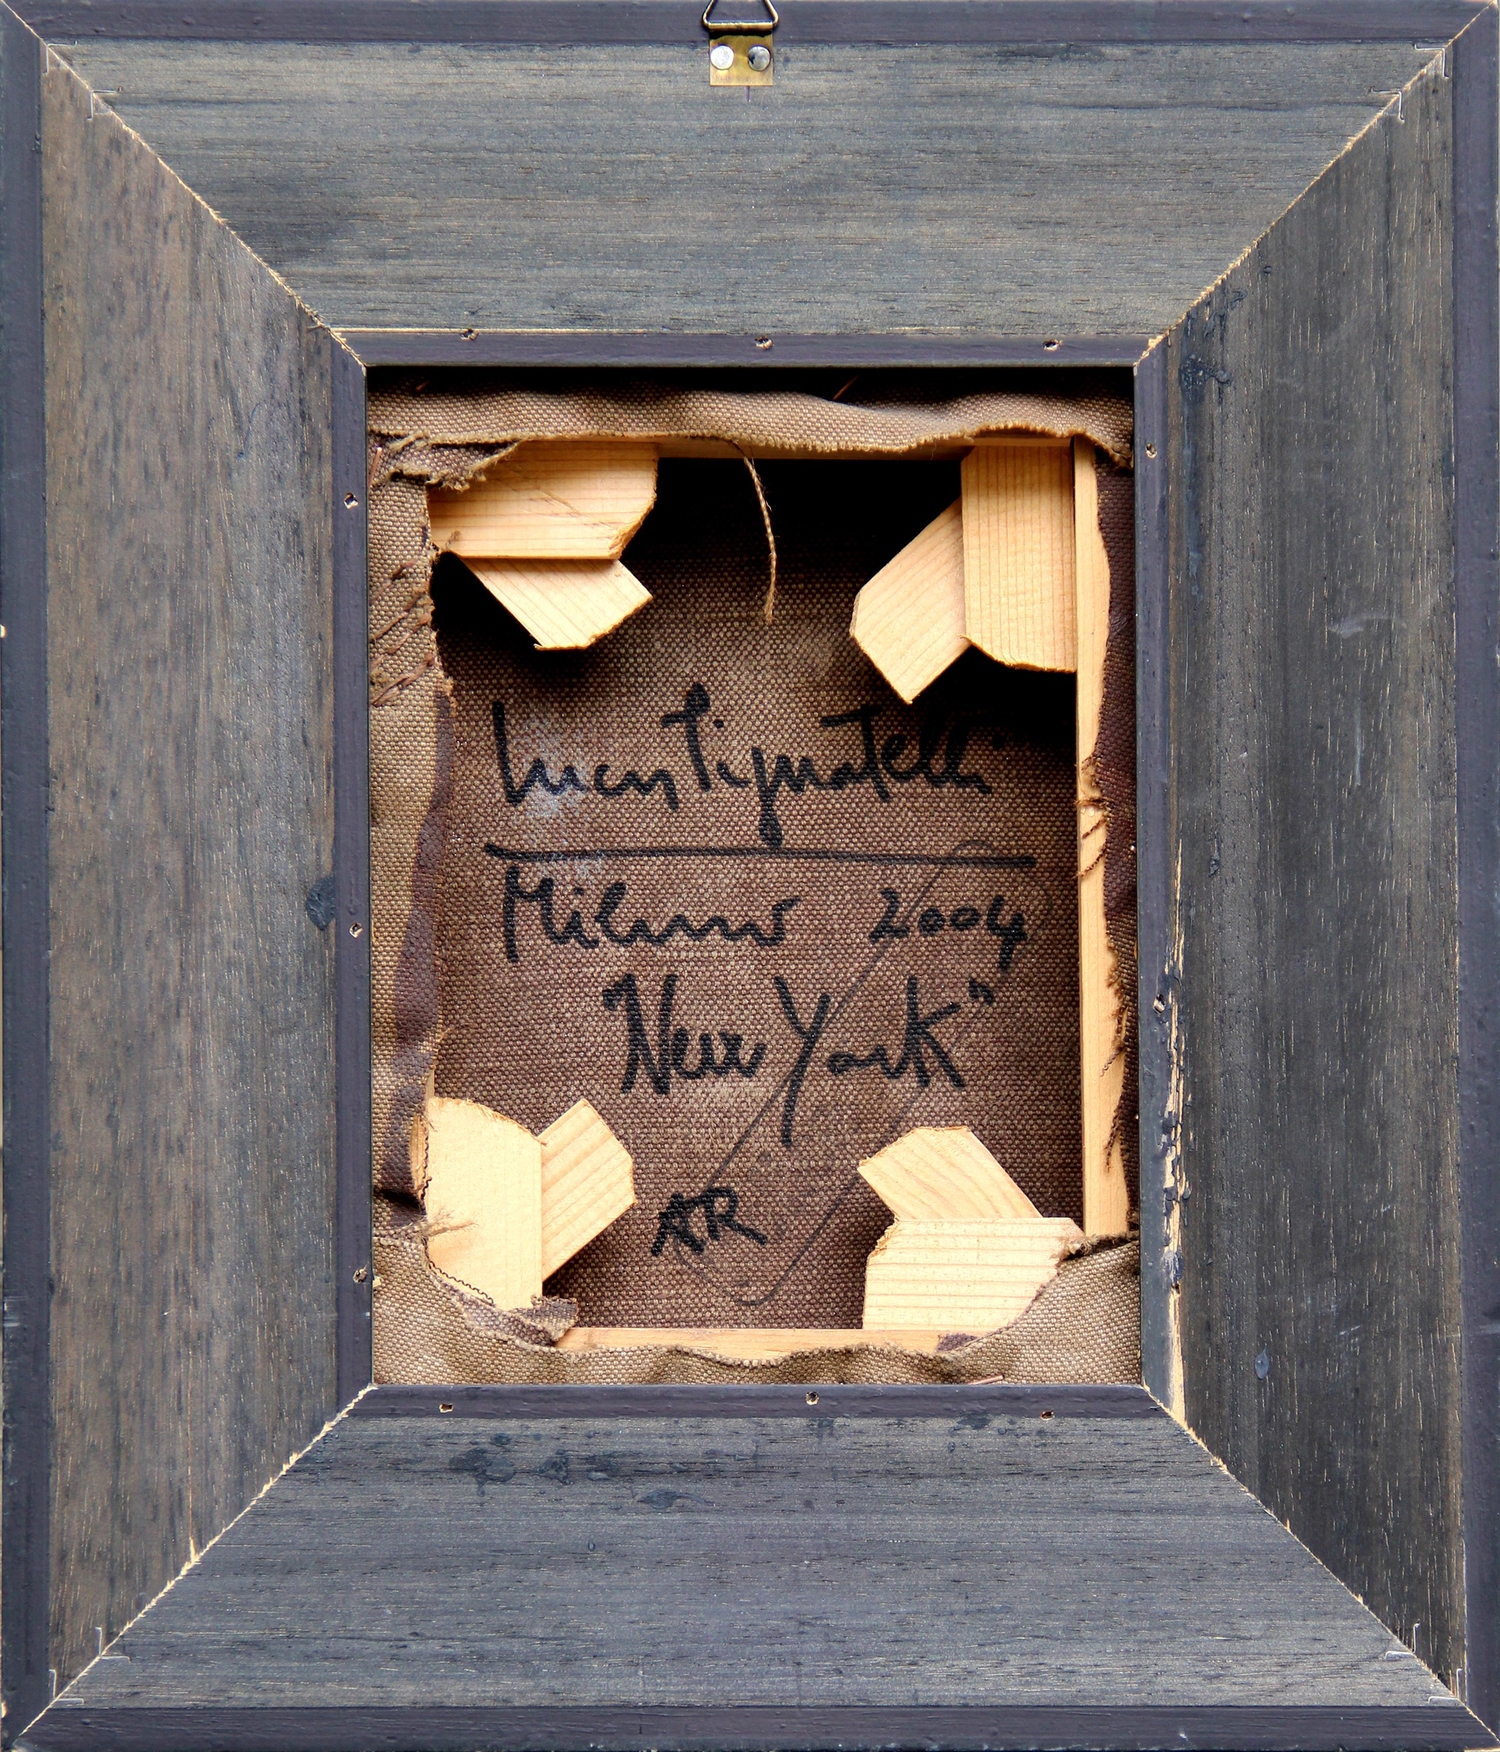 Luca Pignatelli
Milano 2004
"New York"
AR